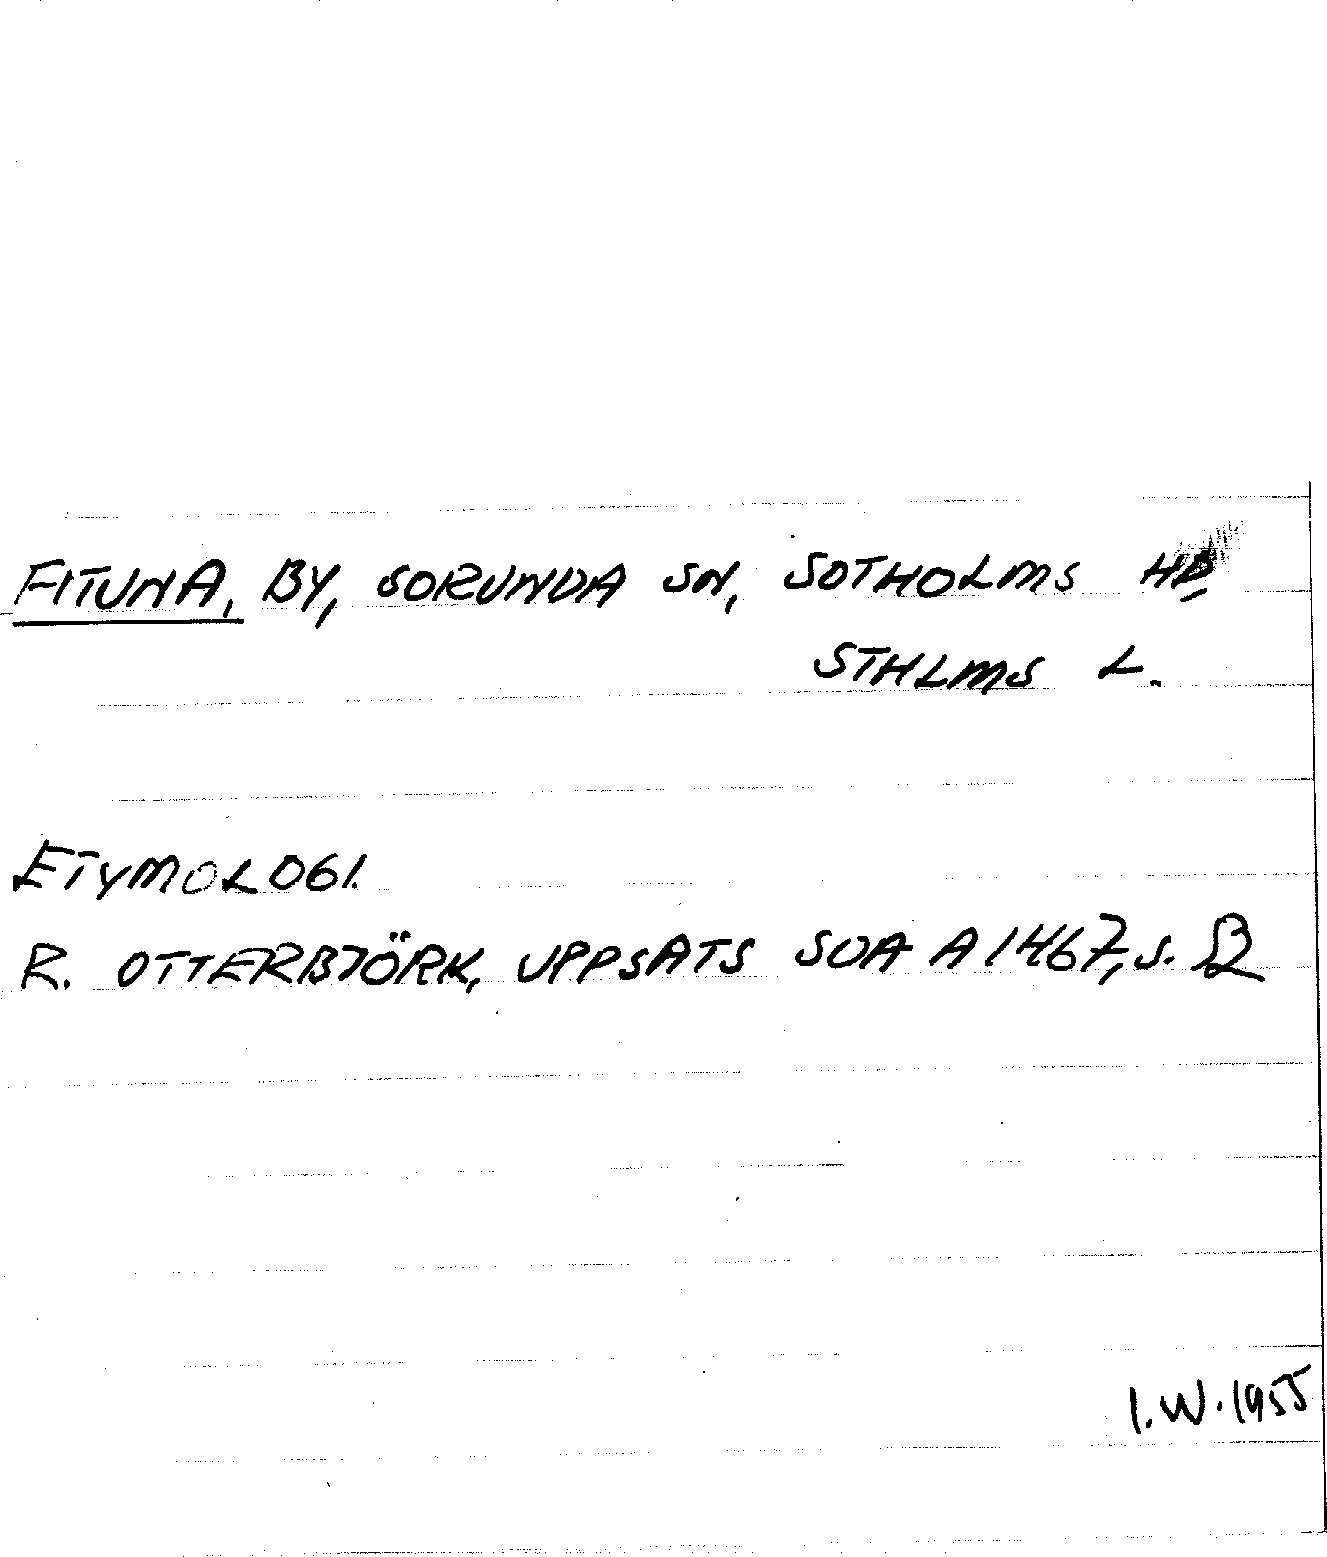 FITUNA, BY, SORUNDA SN, SOTHOLMS HD,
STHLMS L.
ETYMOLOGI.
R. OTTERBJÖRK, UPPSATS SOA A 1467, s.
I. W. 1955